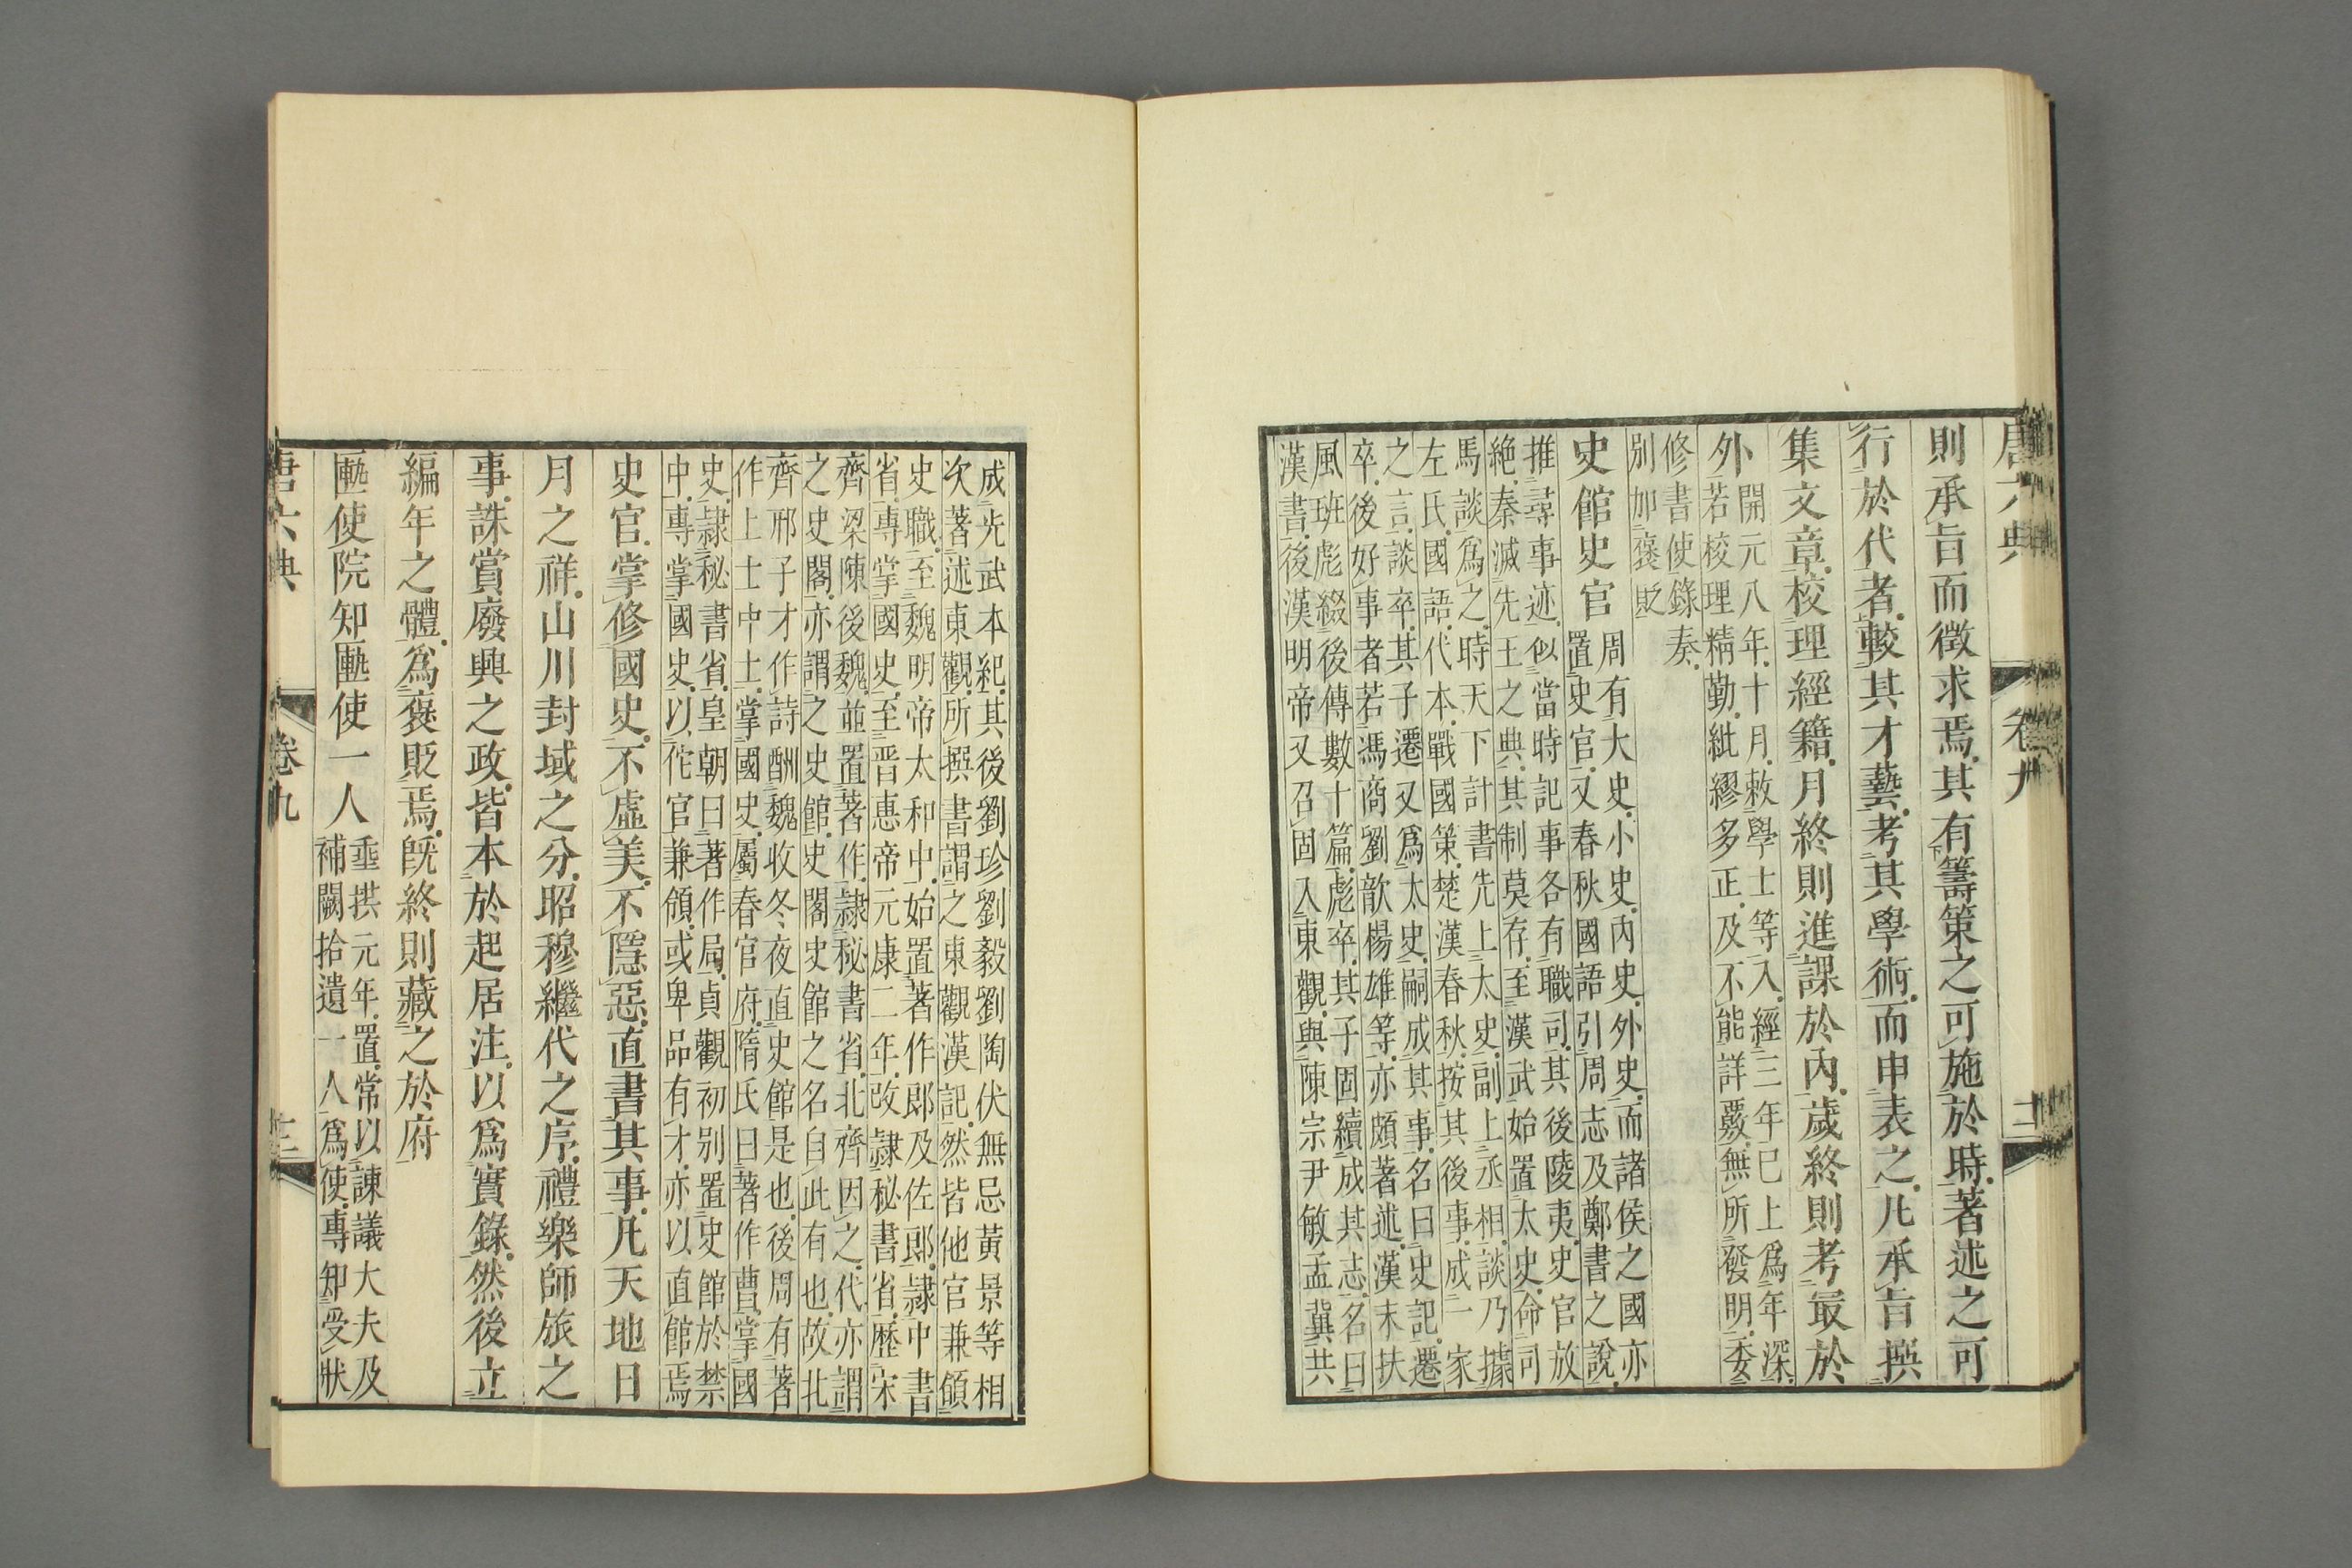 唐六典 卷九 十二
則承旨而徵求焉其有籌策之可施於時著述之可
行於代者較其才藝考其學術而申表之凡承旨撰
集文章校理經籍月終則進課於內歲終則考最於
外
開元八年十月敕學士等入經三年已上爲年深
若校理精勤紕繆多正及不能詳覈無所發明委
修書使錄奏
別加褒貶
史館史官
周有大史小史內史外史而諸侯之國亦
置史官又春秋國語引周志及鄭書之說
推尋事迹似當時記事各有職司其後陵夷史官放
絶秦滅先王之典其制莫存至漢武始置太史命司
馬談爲之時天下計書先上太史副上丞相談乃據
左氏國語代本戰國策楚漢春秋按其後事成一家
之言談卒其子遷又爲太史嗣成其事名曰史記遷
卒後好事者若馮商劉歆楊雄等亦頗著述漢末扶
風班彪綴後傳數十篇彪卒其子固續成其志名曰
漢書後漢明帝又召固入東觀與陳宗尹敏孟冀共
成光武本紀其後劉珍劉毅劉陶伏無忌黃景等相
次著述東觀所撰書謂之東觀漢記然皆他官兼領
史職至魏明帝太和中始置著作郎及佐郎隷中書
省專掌國史至晋惠帝元康二年改隷秘書省歷宋
齊梁陳後魏並置著作隷秘書省北齊因之代亦謂
之史閣亦謂之史館史閣史館之名自此有也故北
齊邢子才作詩酬魏收冬夜直史館是也後周有著
作上士中士掌國史屬春官府隋氏曰著作曹掌國
史隷秘書省皇朝曰著作局貞觀初别置史館於禁
中專掌國史以佗官兼領或卑品有才亦以直館焉
史官掌修國史不虛美不隱惡直書其事凡天地日
月之祥山川封域之分昭穆繼代之序禮樂師旅之
事誅賞廢興之政皆本於起居注以爲實錄然後立
編年之體爲褒貶焉旣終則藏之於府
匭使院知匭使一人
垂拱元年置常以諫議大夫及
補闕拾遺一人爲使專知受狀
唐六典 卷九 十三